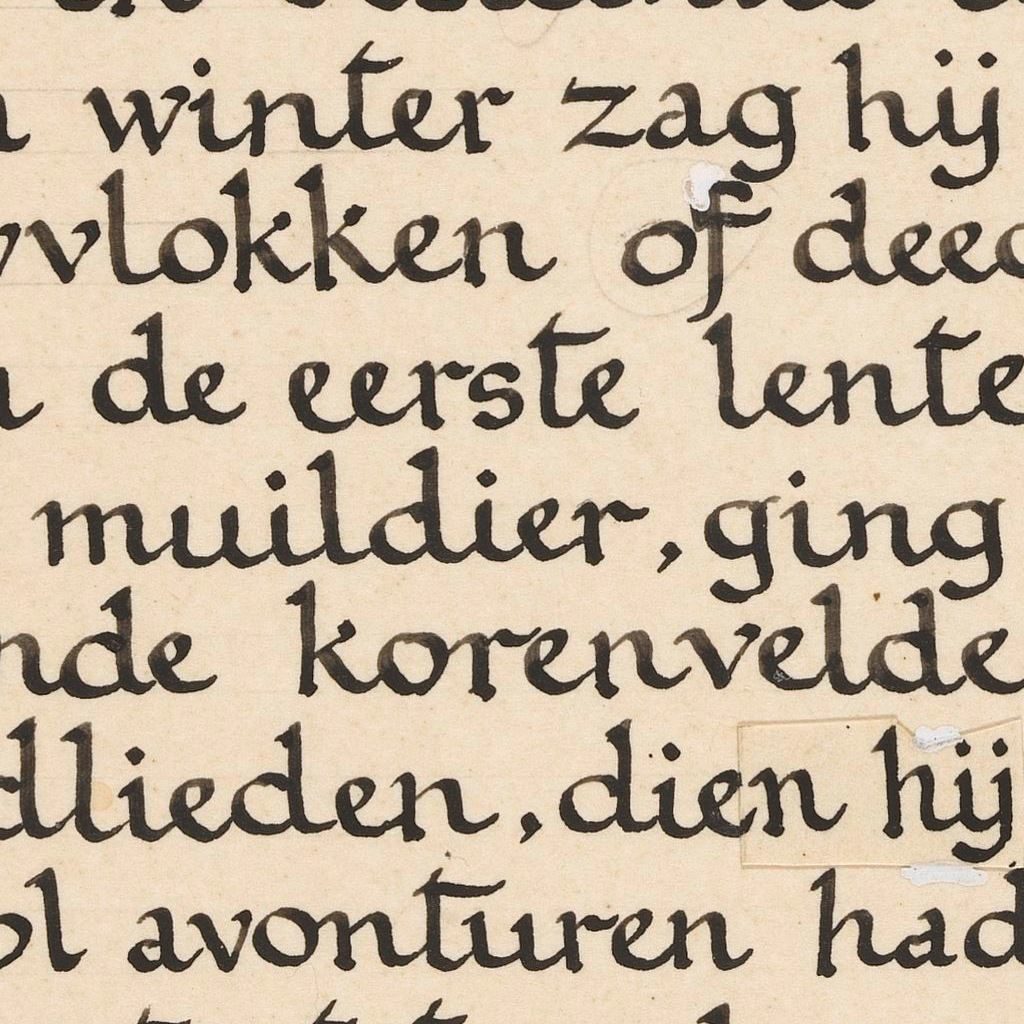 winter zag hij
vlokken of deed
de eerste lente
muildier, ging
nde korenvelde
dlieden, dien hij
ol avonturen had